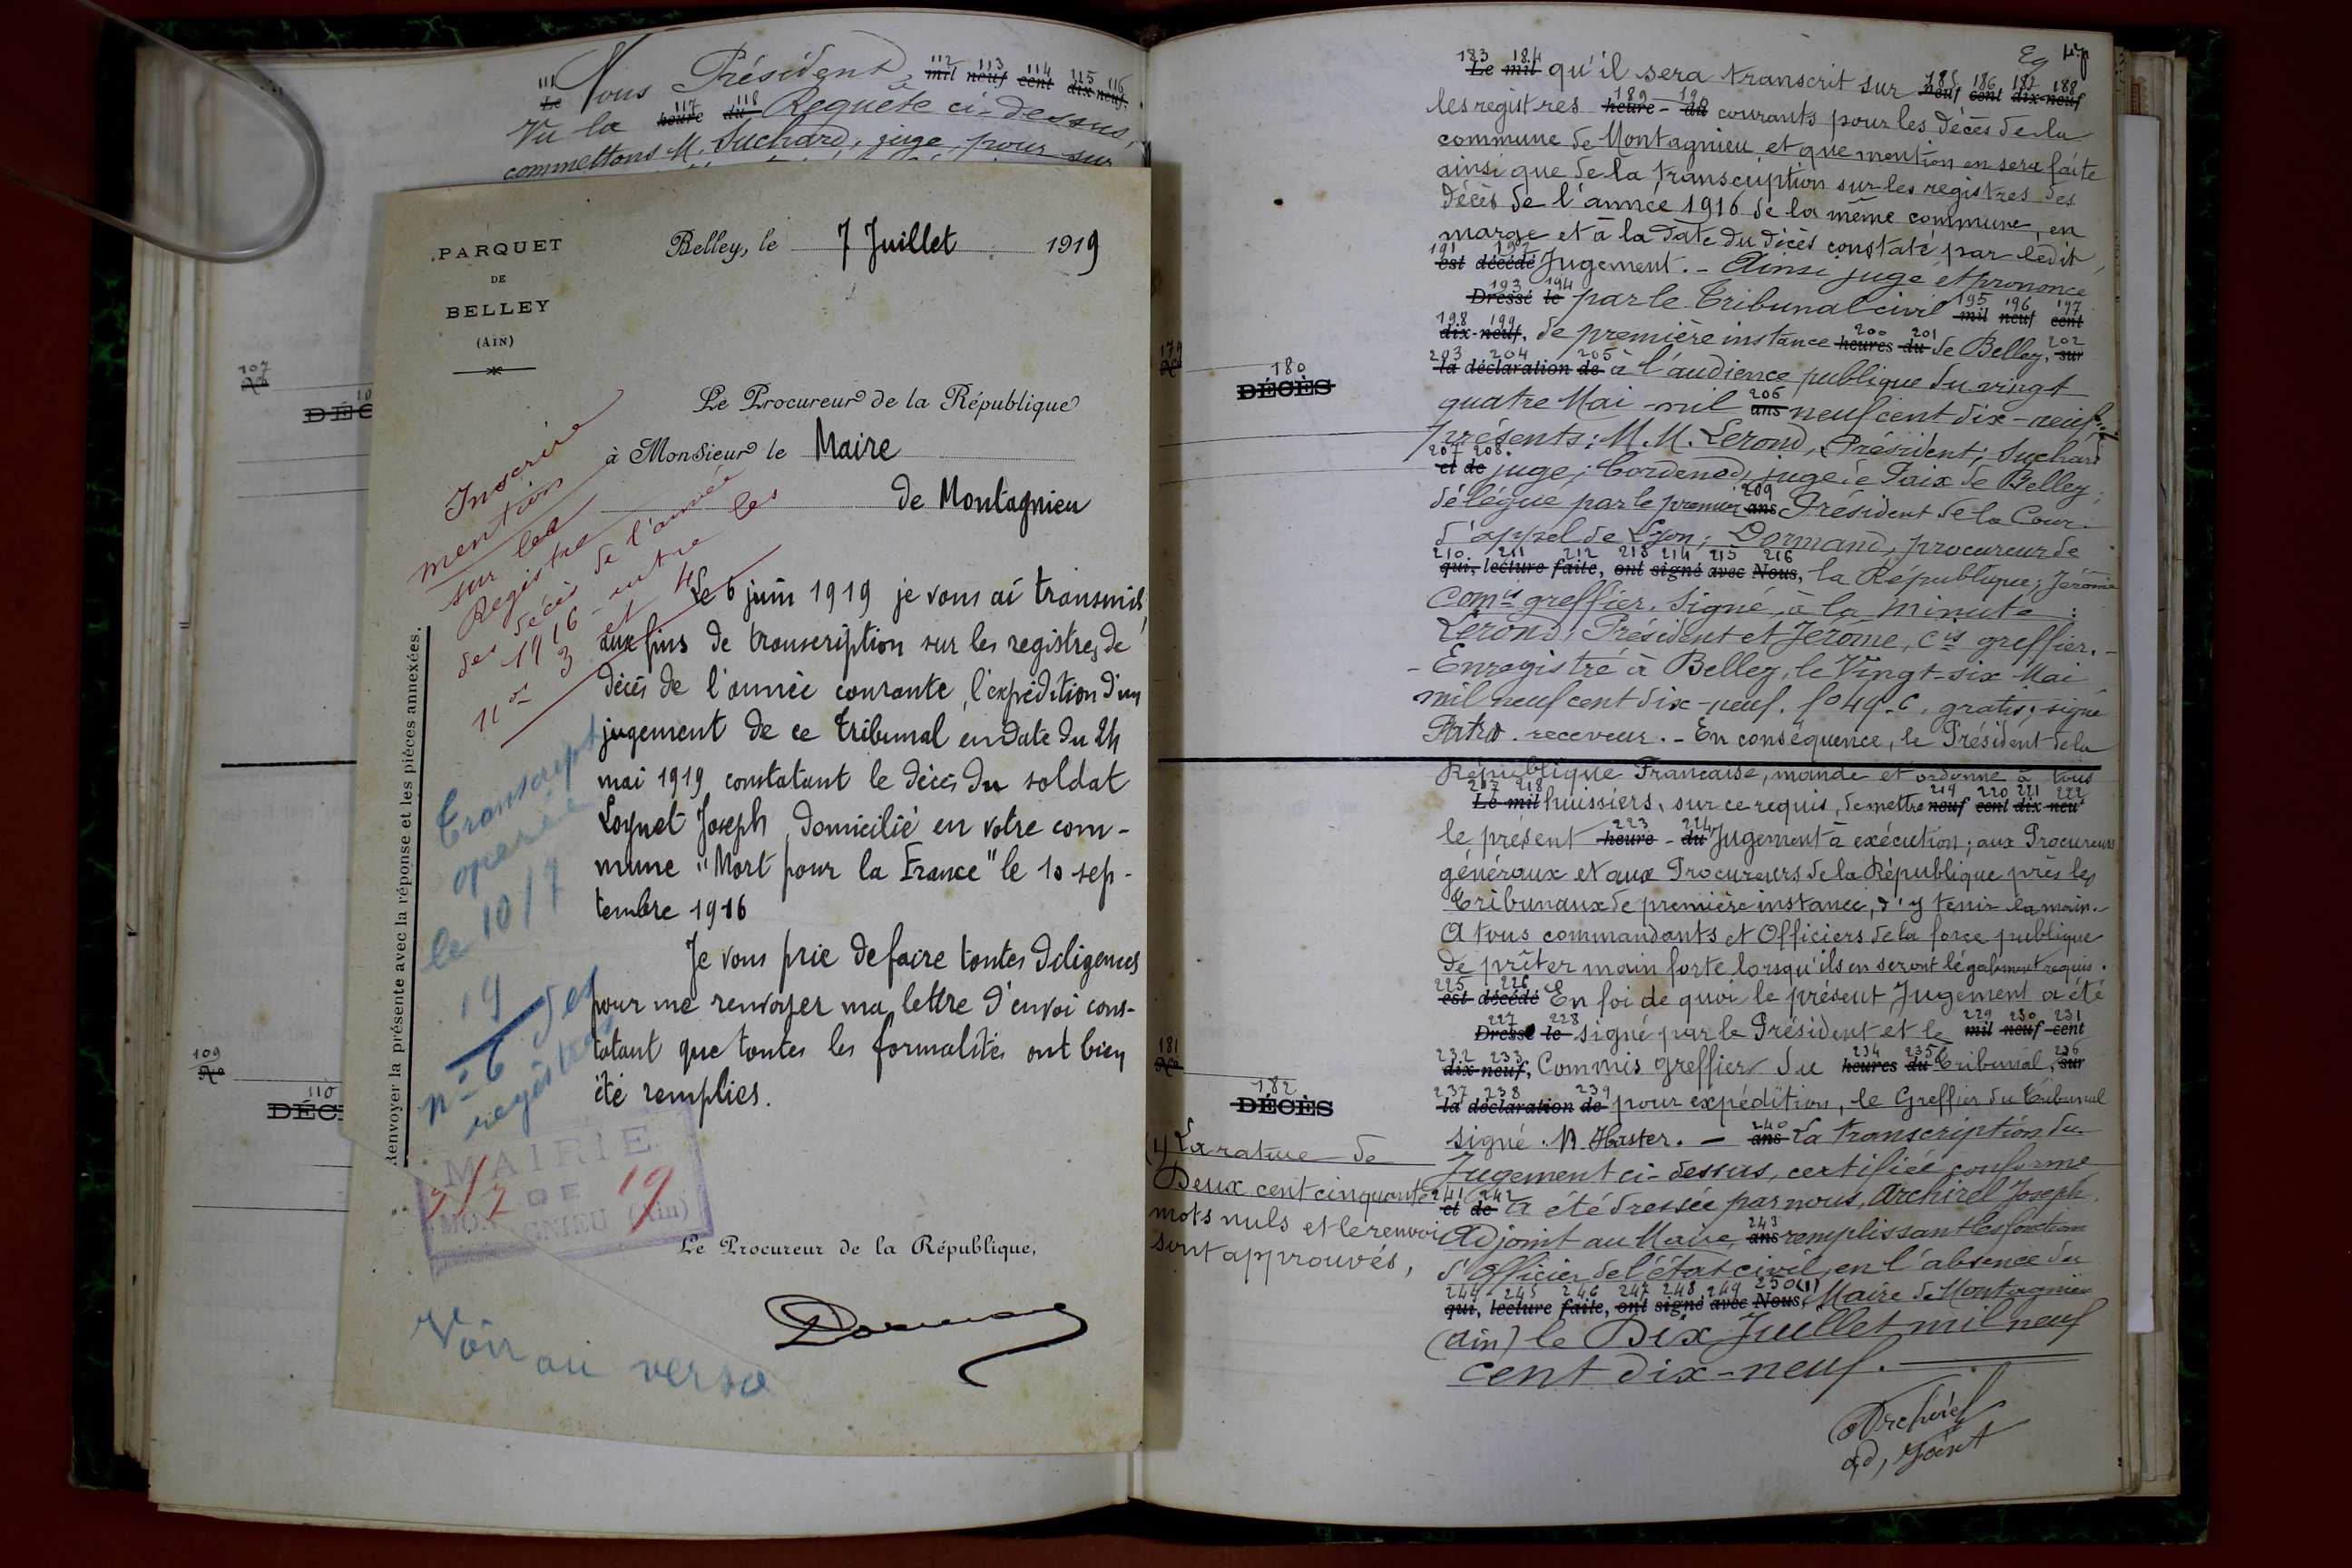 111 112 113 114 115 116
Le Nous Président, mil neuf cent dix-neuf.
117 118
Vu la heure du Requête ci-dessus,
commettons M. Suchard, juge, pour sur
107
No
DÉC
109
No
110
DÉC
PARQUET
DE
BELLEY
(AIN)
Belley, le 7 Juillet 1919
Le Procureur de la République
à Monsieur le Maire
de Montagnieu
Inscrire
mention
sur les
Registre
des décès de l'année
1916 entre les
nos 3 et 4
Le 6 juin 1919 je vous ai transmis,
aux fins de transcription sur les registres de
décès de l'année courante, l'expédition d'un
jugement de ce Tribunal en date du 24
mai 1919 constatant le décès du soldat
Loynet Joseph, domicilié en votre com-
mune "Mort pour la France" le 10 sep-
tembre 1916
Je vous prie de faire toutes diligences
pour me renvoyer ma lettre d'envoi cons-
tatant que toutes les formalités ont bien
été remplies.
Renvoyer la présente avec la réponse et les pièces annexées.
Transcript
operée
le 10/7
19
n° 6 des
registres
MAIRIE
DE
MON GNIEU (Ain)
19
Le Procureur de la République,
Dormand
Voir au verso
183 184 185 186 187 188
Le mil qu'il sera transcrit sur neuf cent dix-neuf
189 190
les registres heure - du courants pour les décès de la
commune de Montagnieu et que mention en sera faite
ainsi que de la transciption sur les registres des
décès de l'année 1916 de la même commune, en
marge et à la date du décès constaté par ledit
191 192
est décédé Jugement. - Ainsi jugé et prononcé
193 194 195 196 197
Dressé le par le Tribunal civil mil neuf cent
198 199 200 201 202
dix-neuf, de première instance heures du de Belley, sur
203 204 205
la déclaration de à l'audience publique du vingt
206
quatre Mai mil ans neuf cent dix-neuf.
Présents: M.M. Lerond, Président; Suchard
207 208
et de juge; Cordenod, juge de Paix de Belley,
209
délégué par le premier ans Président de la Cour
d'appel de Lyon; Dormand, procureur de
210 211 212 213 214 215 216
qui, lecture faite, ont signé avec Nous, la République; Jérôme
Comis greffier. Signé à la minute:
Lerond, Président et Jérôme, Cis greffier.-
- Enregistré à Belley, le Vingt-six Mai
mil neuf cent dix-neuf. f° 49. C. gratis; signé
receveur. - En conséquence, le Président de la
République Française, mande et ordonne à tous
217 218 219 220 221 222
Le mil huissiers, sur ce requis, de mettre neuf cent dix-neuf
223 224
le présent heure - du Jugement à exécution; aux Procureurs
généraux et aux Procureurs de la République près les
Tribunaux de première instance, d'y tenir la main.
A tous commandants et Officiers de la force publique
de prêter main forte lorsqu'ils en seront légalement requis.
225 226
est décédé En foi de quoi le présent Jugement a été
227 228 229 230 231
Dressé le signé par le Président et le mil neuf cent
232 233 234 235 236
dix-neuf, Commis greffier du heures du Tribunal, sur
237 238 239
la déclaration de pour expédition, le Greffier du Tribunal
240
signé. - ans La transcription du
Jugement ci-dessus, certifiée conforme
241 242
et de a été dressée par nous, Archirel Joseph,
243
Adjoint au Maire, ans remplissant les fonctions
d'officier de l'état civil, en l'absence du
244 245 246 247 248 249 250 (1)
qui, lecture faite, ont signé avec Nous, Maire de Montagnieu
(Ain) le Dix Juillet mil neuf
cent dix-neuf.
Archirel
ad, Joint
179
No
180
DÉCÈS
181
No
182
DÉCÈS
(1) La rature de
Deux cent cinquante
mots nuls et le renvoi
sont approuvés,